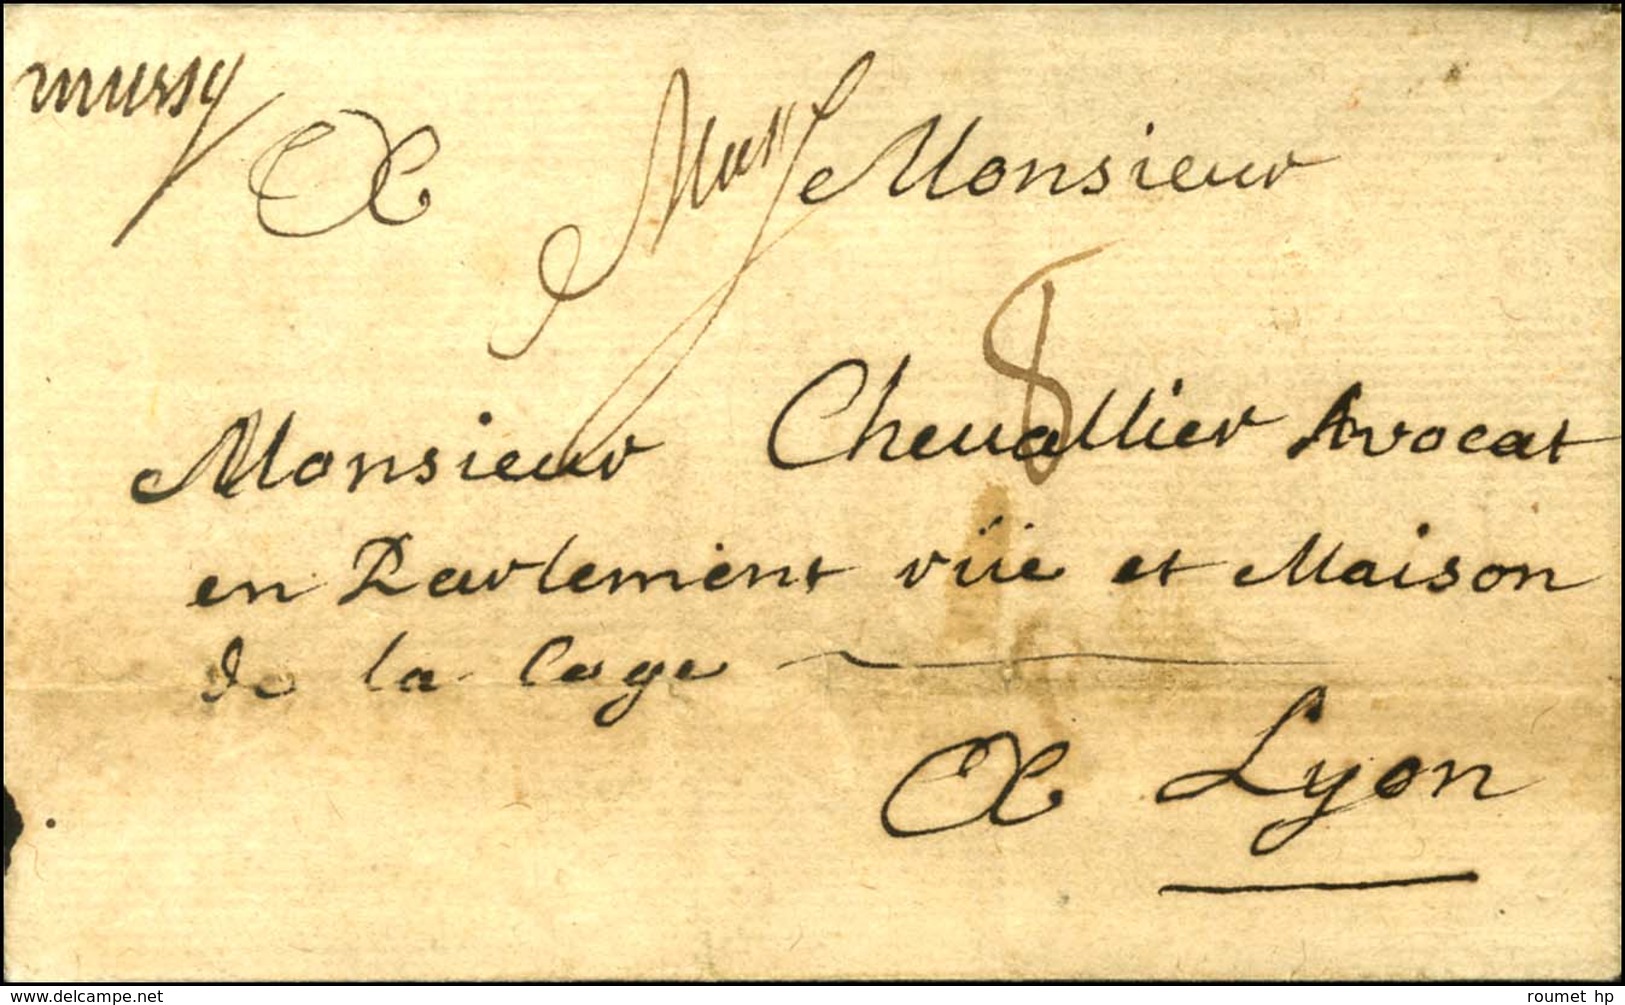 mussy
A Mussy Monsieur
8
Monsieur Cheuallier Avocat
en Parlement rüe et Maison
de la Cage
A Lyon
roumet hp